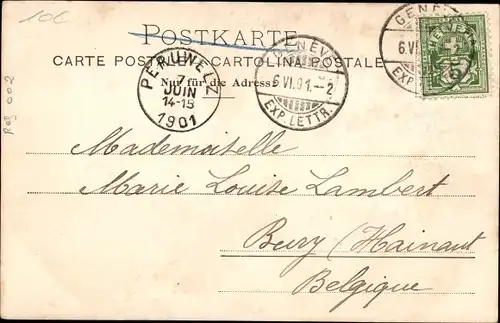 10c
Rés 002
POSTKARTE
CARTE POSTALE CARTOLINA POSTALE
Nur für die Adresse
PERUWELZ
7
JUIN
14-15
1901
GENÈVE
6.VI.01.–2
EXP. LETTR.
GENÈVE
6.VI
EXP. LETTR.
HELVETIA
5
Mademoiselle
Marie Louise Lambert
Bury (Hainaut
Belgique